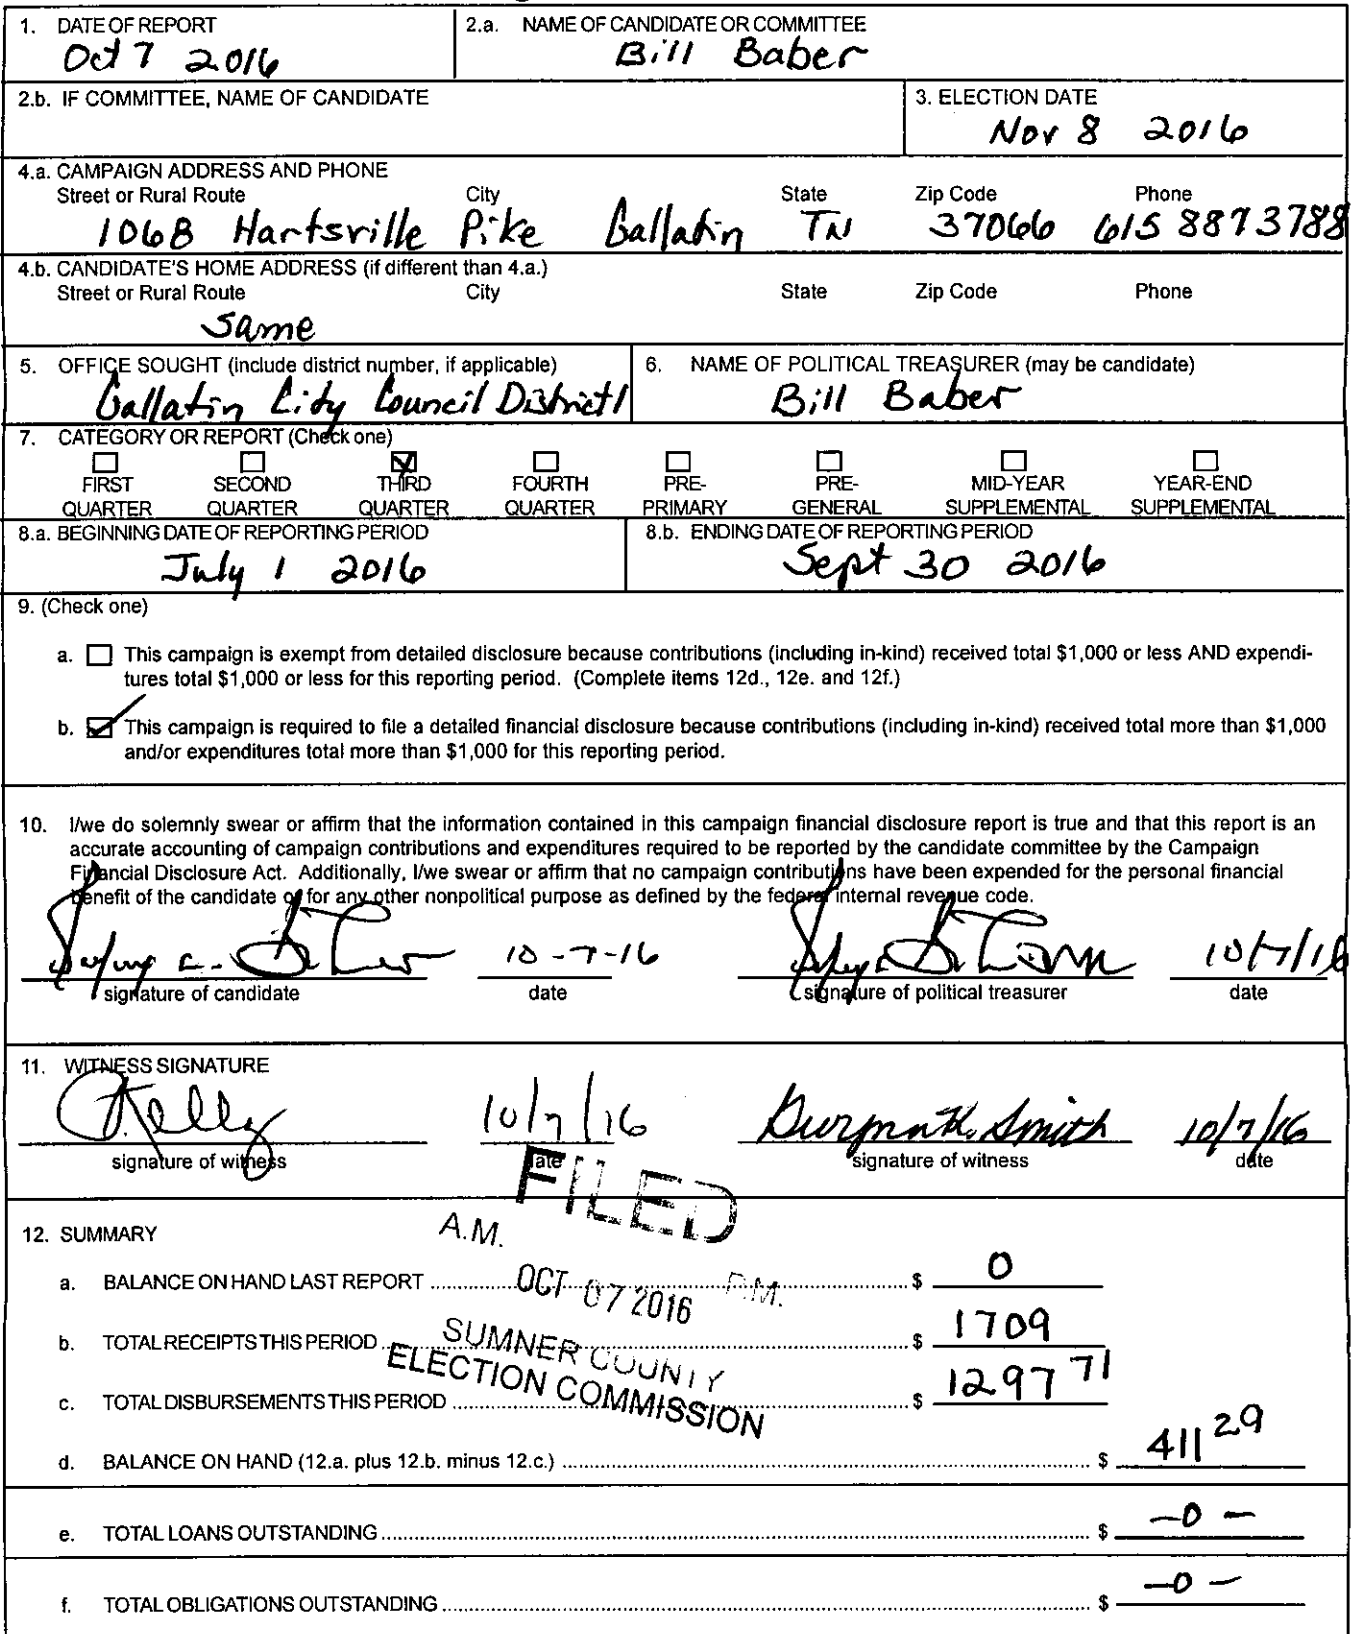 1. DATE OF REPORT
Oct 7 2016
2.a. NAME OF CANDIDATE OR COMMITTEE
Bill Baber
2.b. IF COMMITTEE, NAME OF CANDIDATE
3. ELECTION DATE
Nov 8 2016
4.a. CAMPAIGN ADDRESS AND PHONE
Street or Rural Route City State Zip Code Phone
106B Hartsville Pike Gallatin TN 37066 615 8873788
4.b. CANDIDATE'S HOME ADDRESS (if different than 4.a.)
Street or Rural Route City State Zip Code Phone
Same
5. OFFICE SOUGHT (include district number, if applicable)
Gallatin City Council District 1
6. NAME OF POLITICAL TREASURER (may be candidate)
Bill Baber
7. CATEGORY OR REPORT (Check one)
FIRST QUARTER
SECOND QUARTER
THIRD QUARTER
FOURTH QUARTER
PRE-PRIMARY
PRE-GENERAL
MID-YEAR SUPPLEMENTAL
YEAR-END SUPPLEMENTAL
8.a. BEGINNING DATE OF REPORTING PERIOD
July 1 2016
8.b. ENDING DATE OF REPORTING PERIOD
Sept 30 2016
9. (Check one)
a. This campaign is exempt from detailed disclosure because contributions (including in-kind) received total $1,000 or less AND expendi-
tures total $1,000 or less for this reporting period. (Complete items 12d., 12e. and 12f.)
b. This campaign is required to file a detailed financial disclosure because contributions (including in-kind) received total more than $1,000
and/or expenditures total more than $1,000 for this reporting period.
10. I/we do solemnly swear or affirm that the information contained in this campaign financial disclosure report is true and that this report is an
accurate accounting of campaign contributions and expenditures required to be reported by the candidate committee by the Campaign
Financial Disclosure Act. Additionally, I/we swear or affirm that no campaign contributions have been expended for the personal financial
benefit of the candidate or for any other nonpolitical purpose as defined by the federal internal revenue code.
10-7-16 10/7/16
signature of candidate date signature of political treasurer date
11. WITNESS SIGNATURE
Kelly 10/7/16 Smith 10/7/16
signature of witness date signature of witness date
FILED
A.M. OCT 07 2016 P.M.
SUMNER COUNTY
ELECTION COMMISSION
12. SUMMARY
a. BALANCE ON HAND LAST REPORT $ 0
b. TOTAL RECEIPTS THIS PERIOD $ 1709
c. TOTAL DISBURSEMENTS THIS PERIOD $ 1297 71
d. BALANCE ON HAND (12.a. plus 12.b. minus 12.c.) $ 411 29
e. TOTAL LOANS OUTSTANDING $ -0-
f. TOTAL OBLIGATIONS OUTSTANDING $ -0-